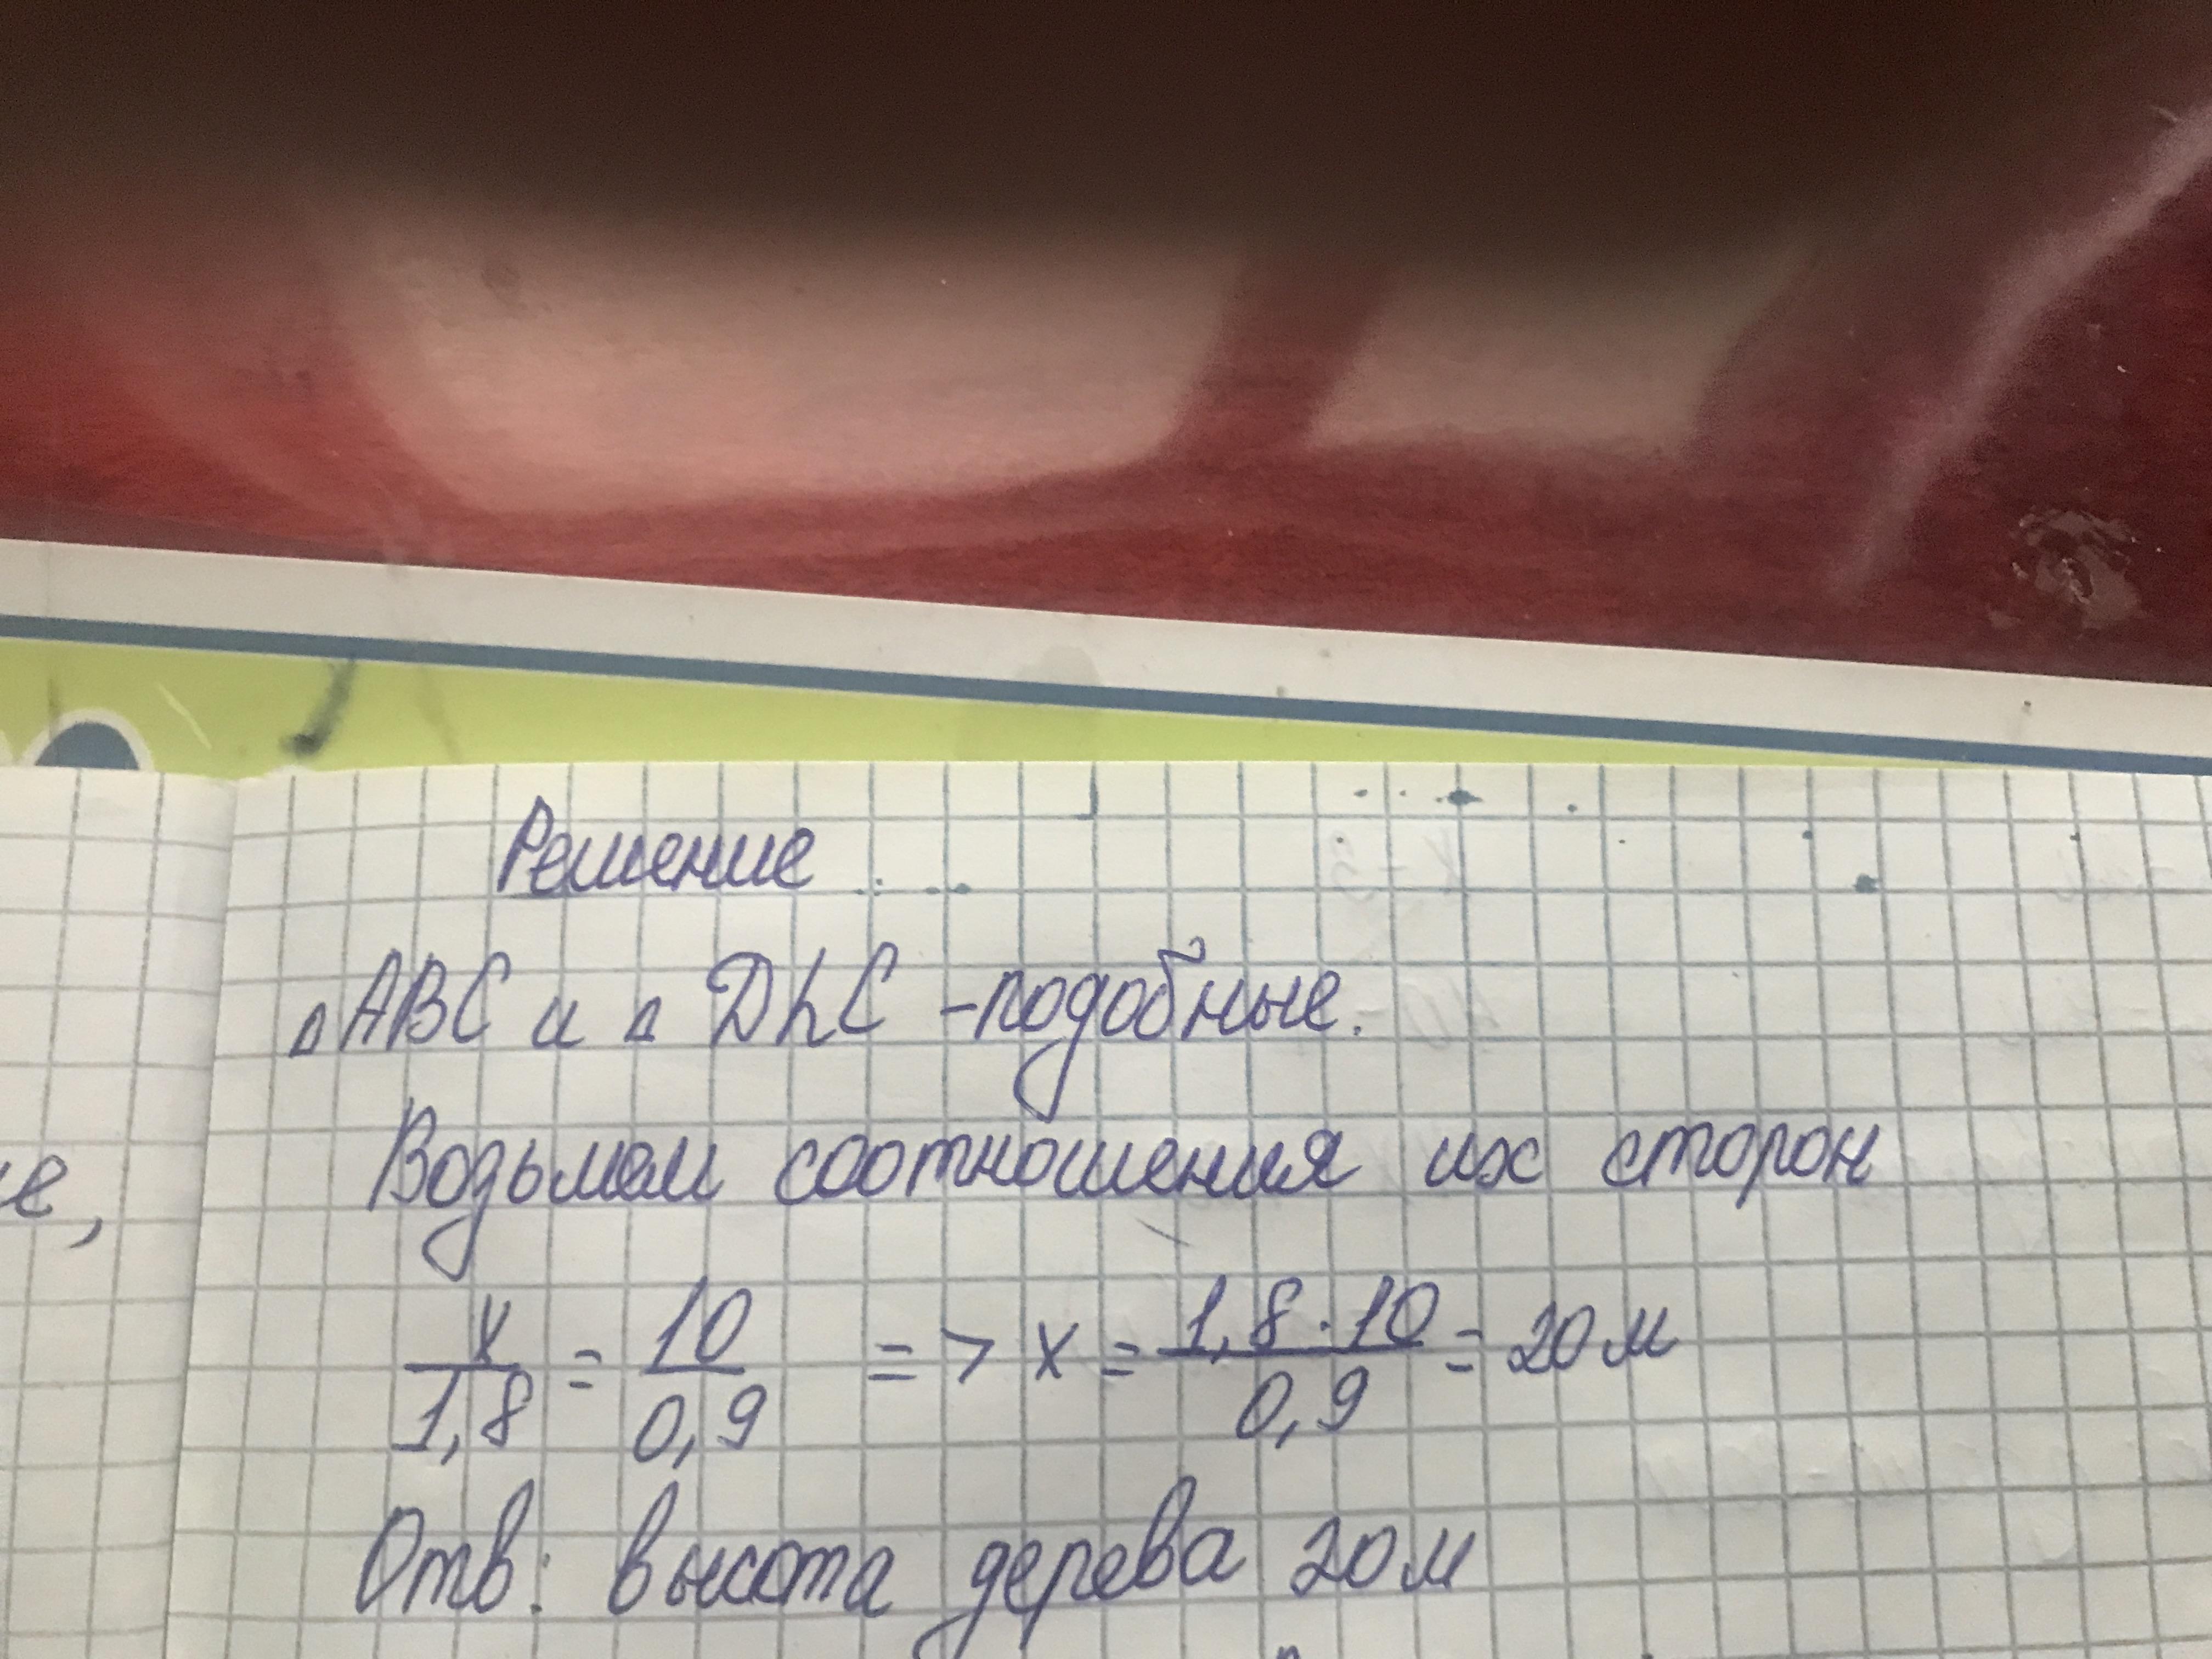 Решение
△ABC и △ DkC - подобные.
Водьмем соотношения их сторон
x/1,8 = 10/0,9 => x = 1,8·10/0,9 = 20 м
Отв: высота дерева 20 м